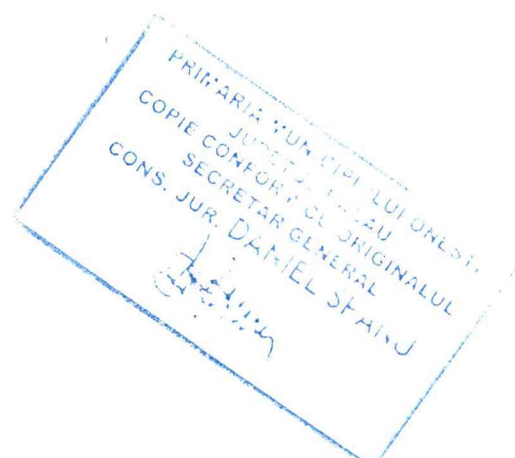 PRIMARIA MUNICIPIULUI ONEST.
JUDETUL BACAU
COPIE CONFORM CU ORIGINALUL
SECRETAR GENERAL
CONS. JUR. DANIEL